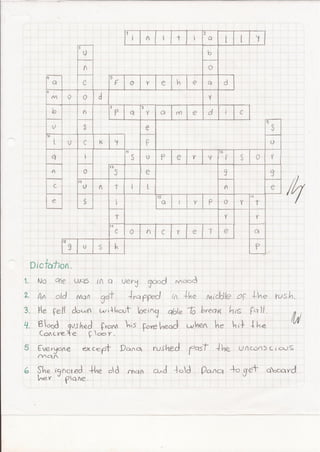 i n i t i a l l y
u b
n o
a c F o r e h e a d
m o o d r
b n P a r a m e d i c
u s e S
L u c k y F u
a i S u p e r v i s o r g
n o S e g g
c u n T i L n e
e s i a i r p o r T
T r r
c o n c r e T e a
g u s h P
Dictation.
1. No one was in a very good mood
2. An old man got trapped in the middle of the rush.
3. He fell down without being able To break his fall.
4. Blood gushed from his forehead when he hit the
Concrete floor.
5 Everyone except Dana rushed past the unconscious
man
6 She ignored the old man and told Danca to get aboard
her plane.